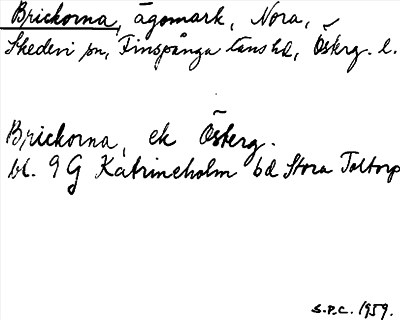 Brickorna, ägomark, Nora,
Skedevi sn, Finspånga läns hd, Österg. l.
Brickorna, ek Österg.
bl. 9 G Katrineholm bd Stora Toltorp
S.P.C. 1959.